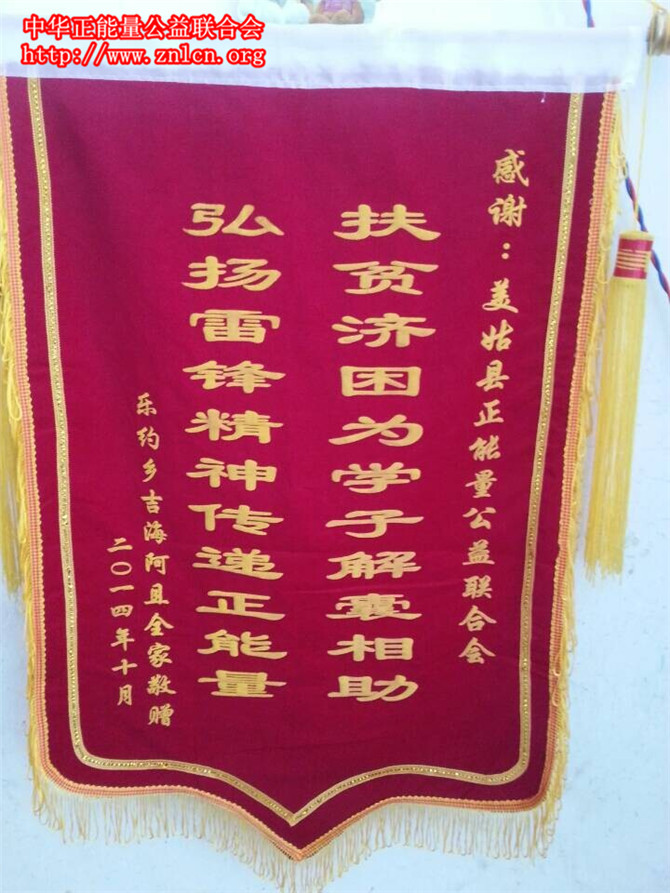 中华正能量公益联合会
http://www.znlcn.org
感谢：美姑县正能量公益联合会
扶贫济困为学子解囊相助
弘扬雷锋精神传递正能量
乐约乡吉海阿且全家敬赠
二〇一四年十月